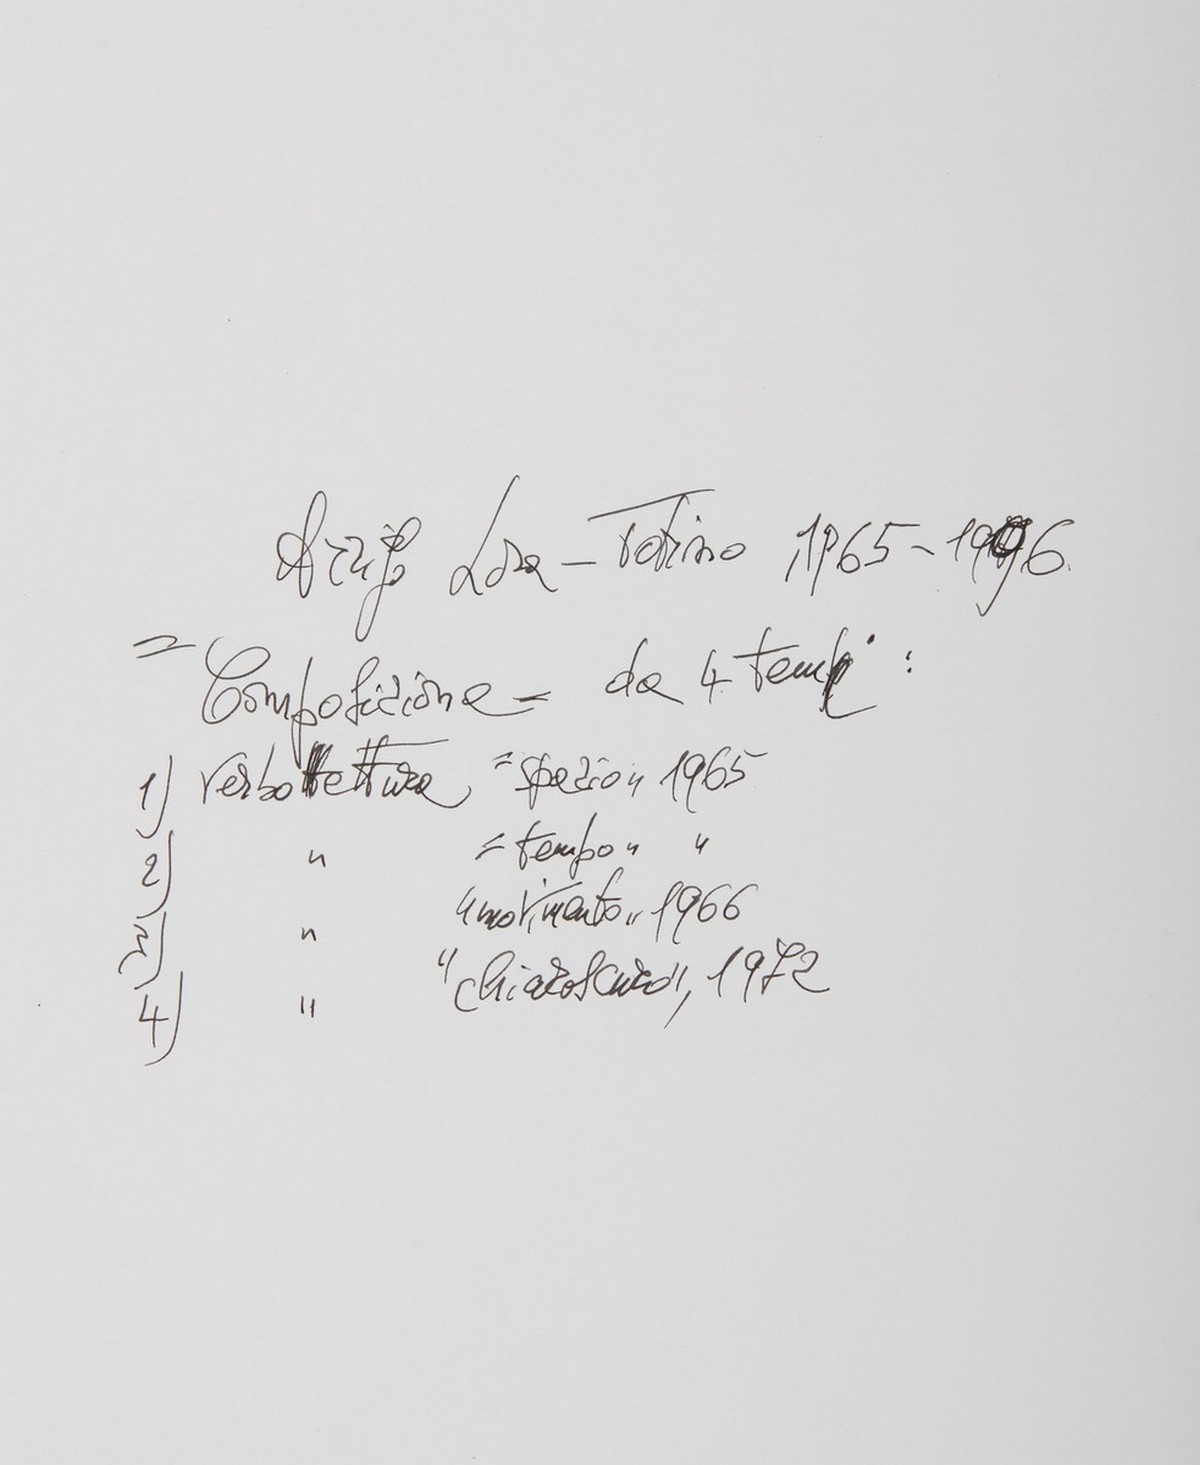 Arrigo Lora-Totino 1965-1996
"Composizione" da 4 tempi:
1) Verbotettura "spazio" 1965
2) " "tempo" "
3) " "movimento" 1966
4) " "chiaroscuro", 1972